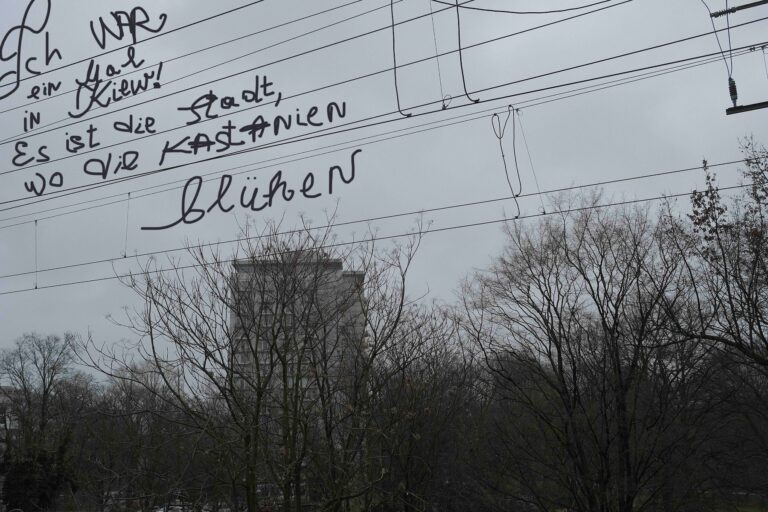 Ich WAR
ein Mal
in Kiew!
Es ist die Stadt,
wo die KASTANIEN
blühen